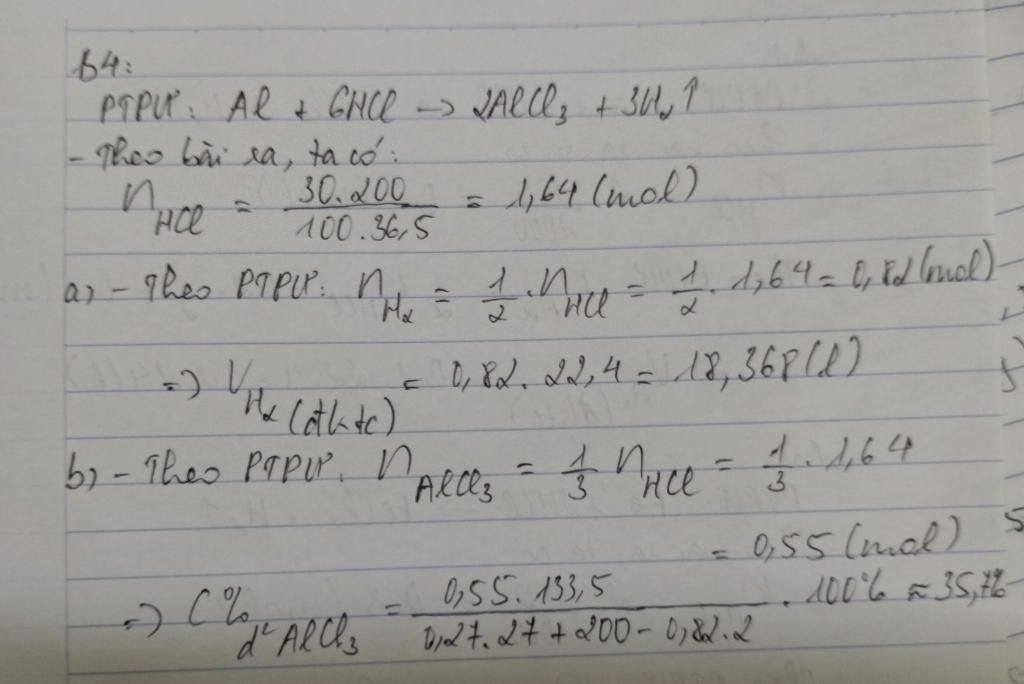 b4:
PTPƯ: Al + 6HCl → 2AlCl₃ + 3H₂↑
- Theo bài ra, ta có:
n_HCl = (30.200)/(100.36,5) = 1,64 (mol)
a) - Theo PTPƯ: n_H₂ = 1/2 . n_HCl = 1/2 . 1,64 = 0,82 (mol)
=> V_H₂ (đktc) = 0,82 . 22,4 = 18,368 (l)
b) - Theo PTPƯ. n_AlCl₃ = 1/3 n_HCl = 1/3 . 1,64
= 0,55 (mol)
=> C%_d² AlCl₃ = (0,55.133,5)/(0,27.27 + 200 - 0,82.2) . 100% ≈ 35,7%